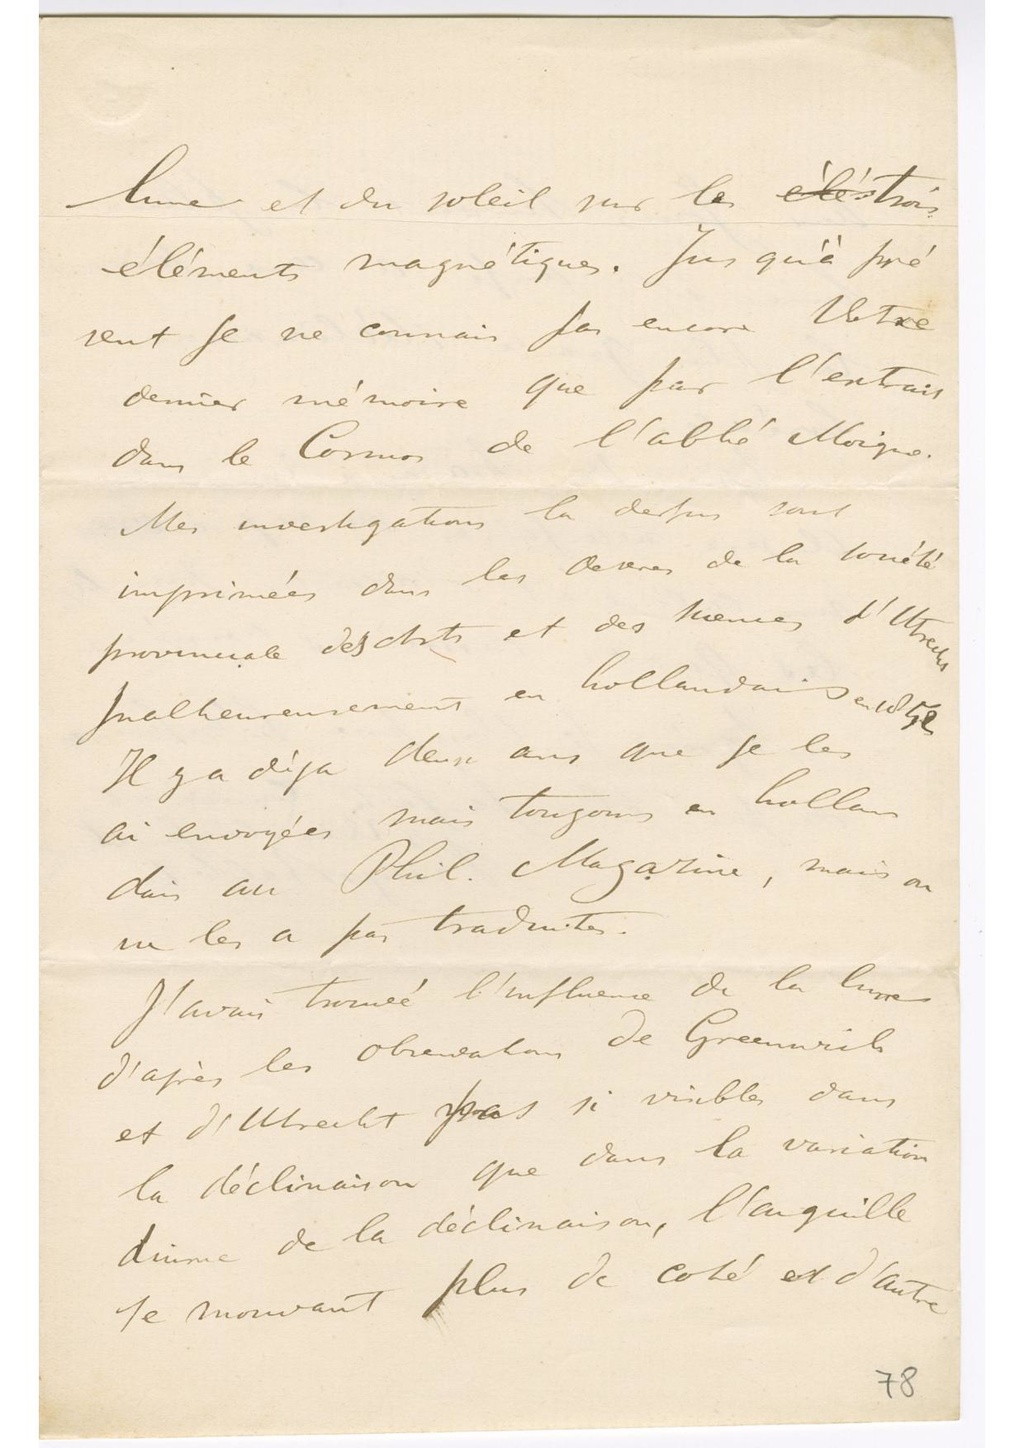 lune et du soleil sur les trois
éléments magnétiques. Jus qu'à pré
sent je ne connais pas encore Votre
dernier mémoire que par l'extrait
dans le Cosmos de l'abbé Moigno.
Mes investigations la dessus sont
imprimées dans les Oeuvres de la société
provinciale des Arts et des sciences d'Utrecht
malheureusement en hollandais en 1852
Il y a déja deux ans que je les
ai envoyées mais toujours en hollan
dais au Phil. Magazine, mais on
ne les a pas traduites.
J'avais trouvé l'influence de la lune
d'après les observations de Greenwich
et d'Utrecht pas si visibles dans
la déclinaison que dans la variation
diurne de la déclinaison, l'anguille
se mouvant plus de coté et d'autre
78